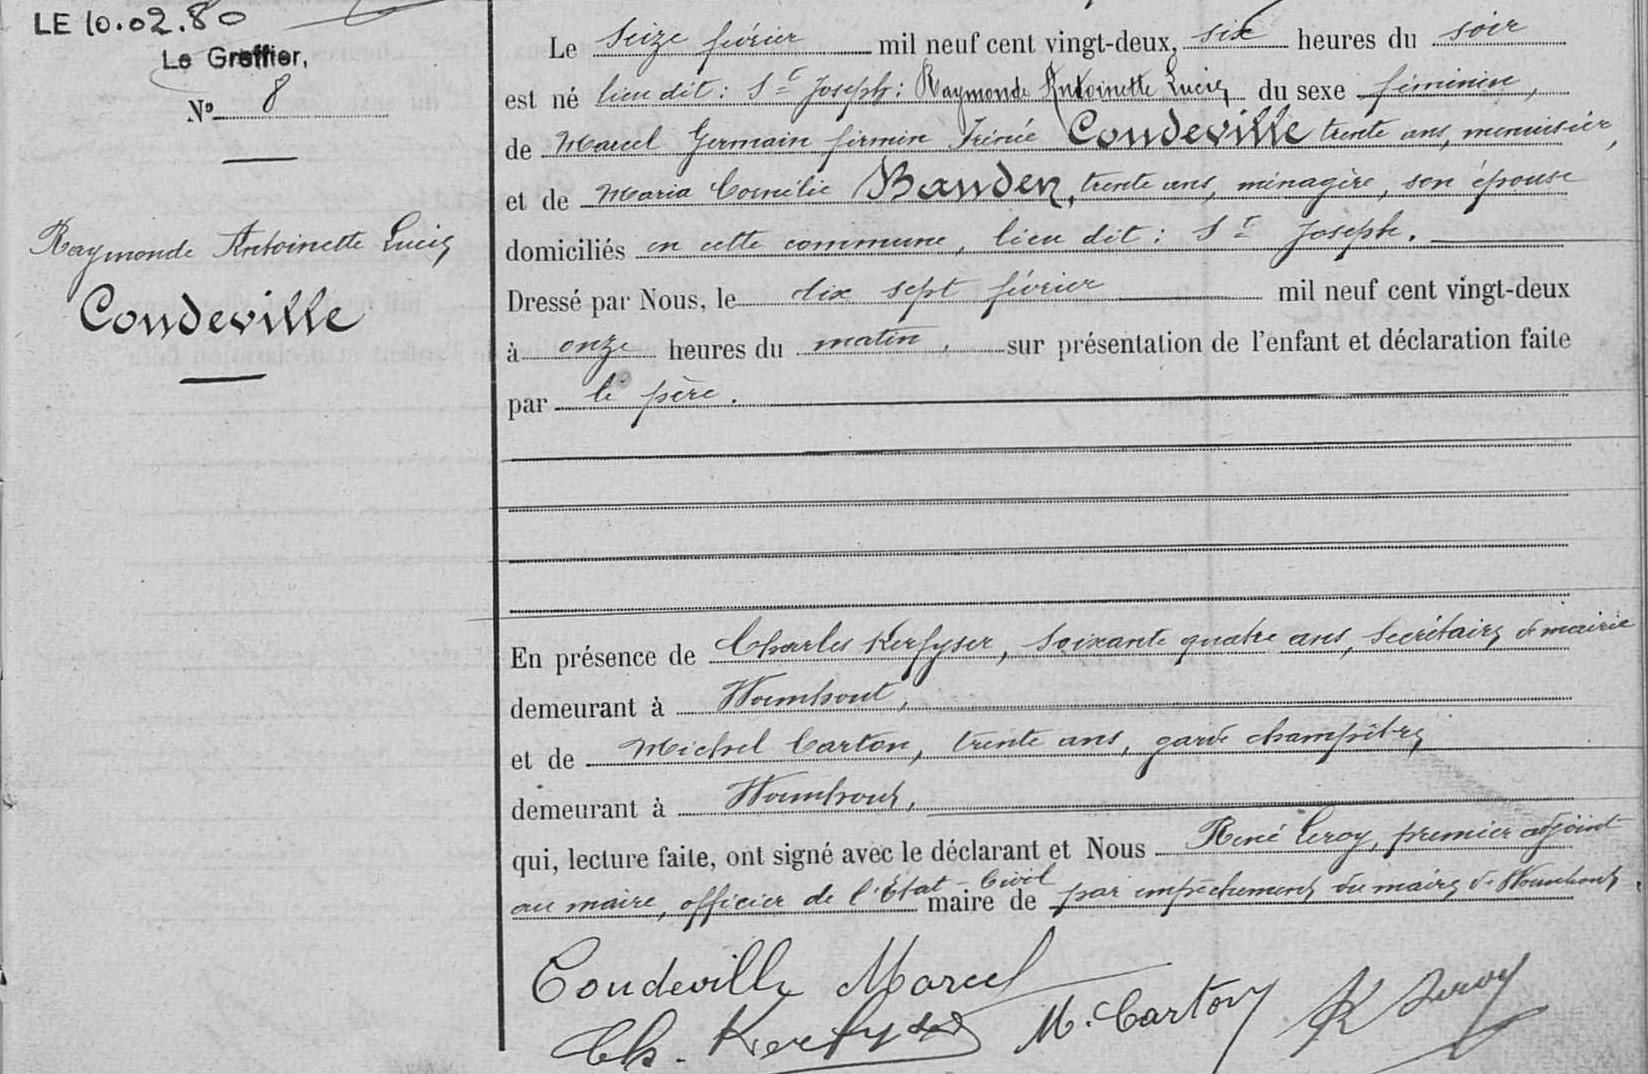 LE 10.02.80
Le Greffier,
No 8
Raymonde Antoinette Lucie
Coudeville
Le seize février mil neuf cent vingt-deux, six heures du soir
est né lieu dit : St Joseph : Raymonde Antoinette Lucie, du sexe féminin,
de Marcel Germain firmin Irénée Coudeville trente ans, menuisier,
et de Maria Cornélie Banden, trente ans, ménagère, son épouse
domiciliés en cette commune, lieu dit : St Joseph.
Dressé par Nous, le dix sept février mil neuf cent vingt-deux
à onze heures du matin, sur présentation de l'enfant et déclaration faite
par le père.
En présence de Charles Kerfyser, soixante quatre ans, secrétaire de mairie
demeurant à Wormhout,
et de Michel Carton, trente ans, garde champêtre
demeurant à Wormhout,
qui, lecture faite, ont signé avec le déclarant et Nous René Leroy, premier adjoint
au maire, officier de l'Etat-Civil maire de par empêchement du maire de Wormhout.
Coudeville Marcel
Ch. Kerfyser M. Carton R Leroy